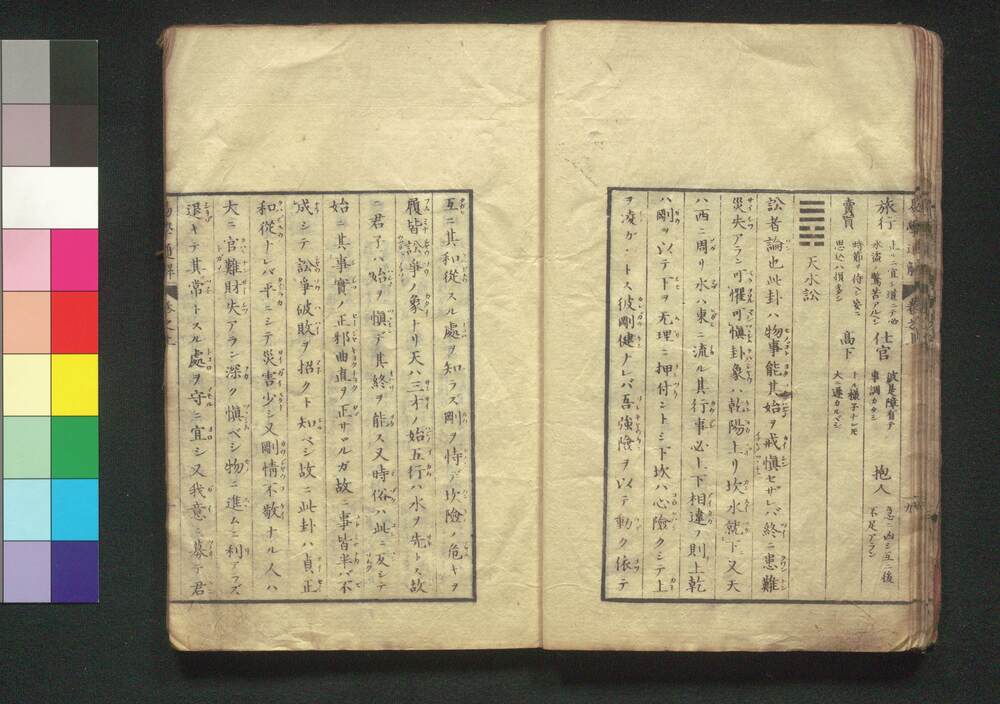 旅行 止ルニ宜シ
水盗ノ驚苦アルベシ
仕官 彼是障有テ
事調カタシ
抱人 急ニ凶シ互ニ後
不足アラン
賣買 時節ヲ待ベシ
思込ハ損多シ
高下 上ル様子ナレ𪜈
大ニ違カルベシ
天水訟
訟者論也此卦ハ物事能其始ヲ戒愼セザレバ終ニ患難
災失アラン可懼可愼卦象ハ乾陽上リ坎水就下ニ又天
ハ西ニ周リ水ハ東ニ流ル其行事必上下相違フ則上乾
ハ剛ヲ以テ下ヲ无理ニ押付ントシ下坎ハ心險クシテ上
ヲ凌ガントス彼剛健ナレバ吾強險ヲ以テ動ク依テ
互ニ其和從スル處ヲ知ラズ剛ヲ恃デ坎險ノ危キヲ
履皆訟爭ノ象トリ天ハ三才ノ始五行ハ水ヲ先トス故
ニ君子ハ始ヲ愼デ其終ヲ能ス又時俗ハ此ニ反シテ
始ニ其事實ノ正邪曲直ヲ正サヾルガ故ニ事皆半バ不
成シテ訟爭破敗ヲ招クト知ベシ故ニ此卦ハ貞正
和從ナレバ平ニシテ災害少シ又剛情不敬ナル人ハ
大ニ官難財失アラン深ク愼ベシ物ニ進ムニ利アラズ
退キテ其常トスル處ヲ守ニ宜シ又我意ニ募テ君